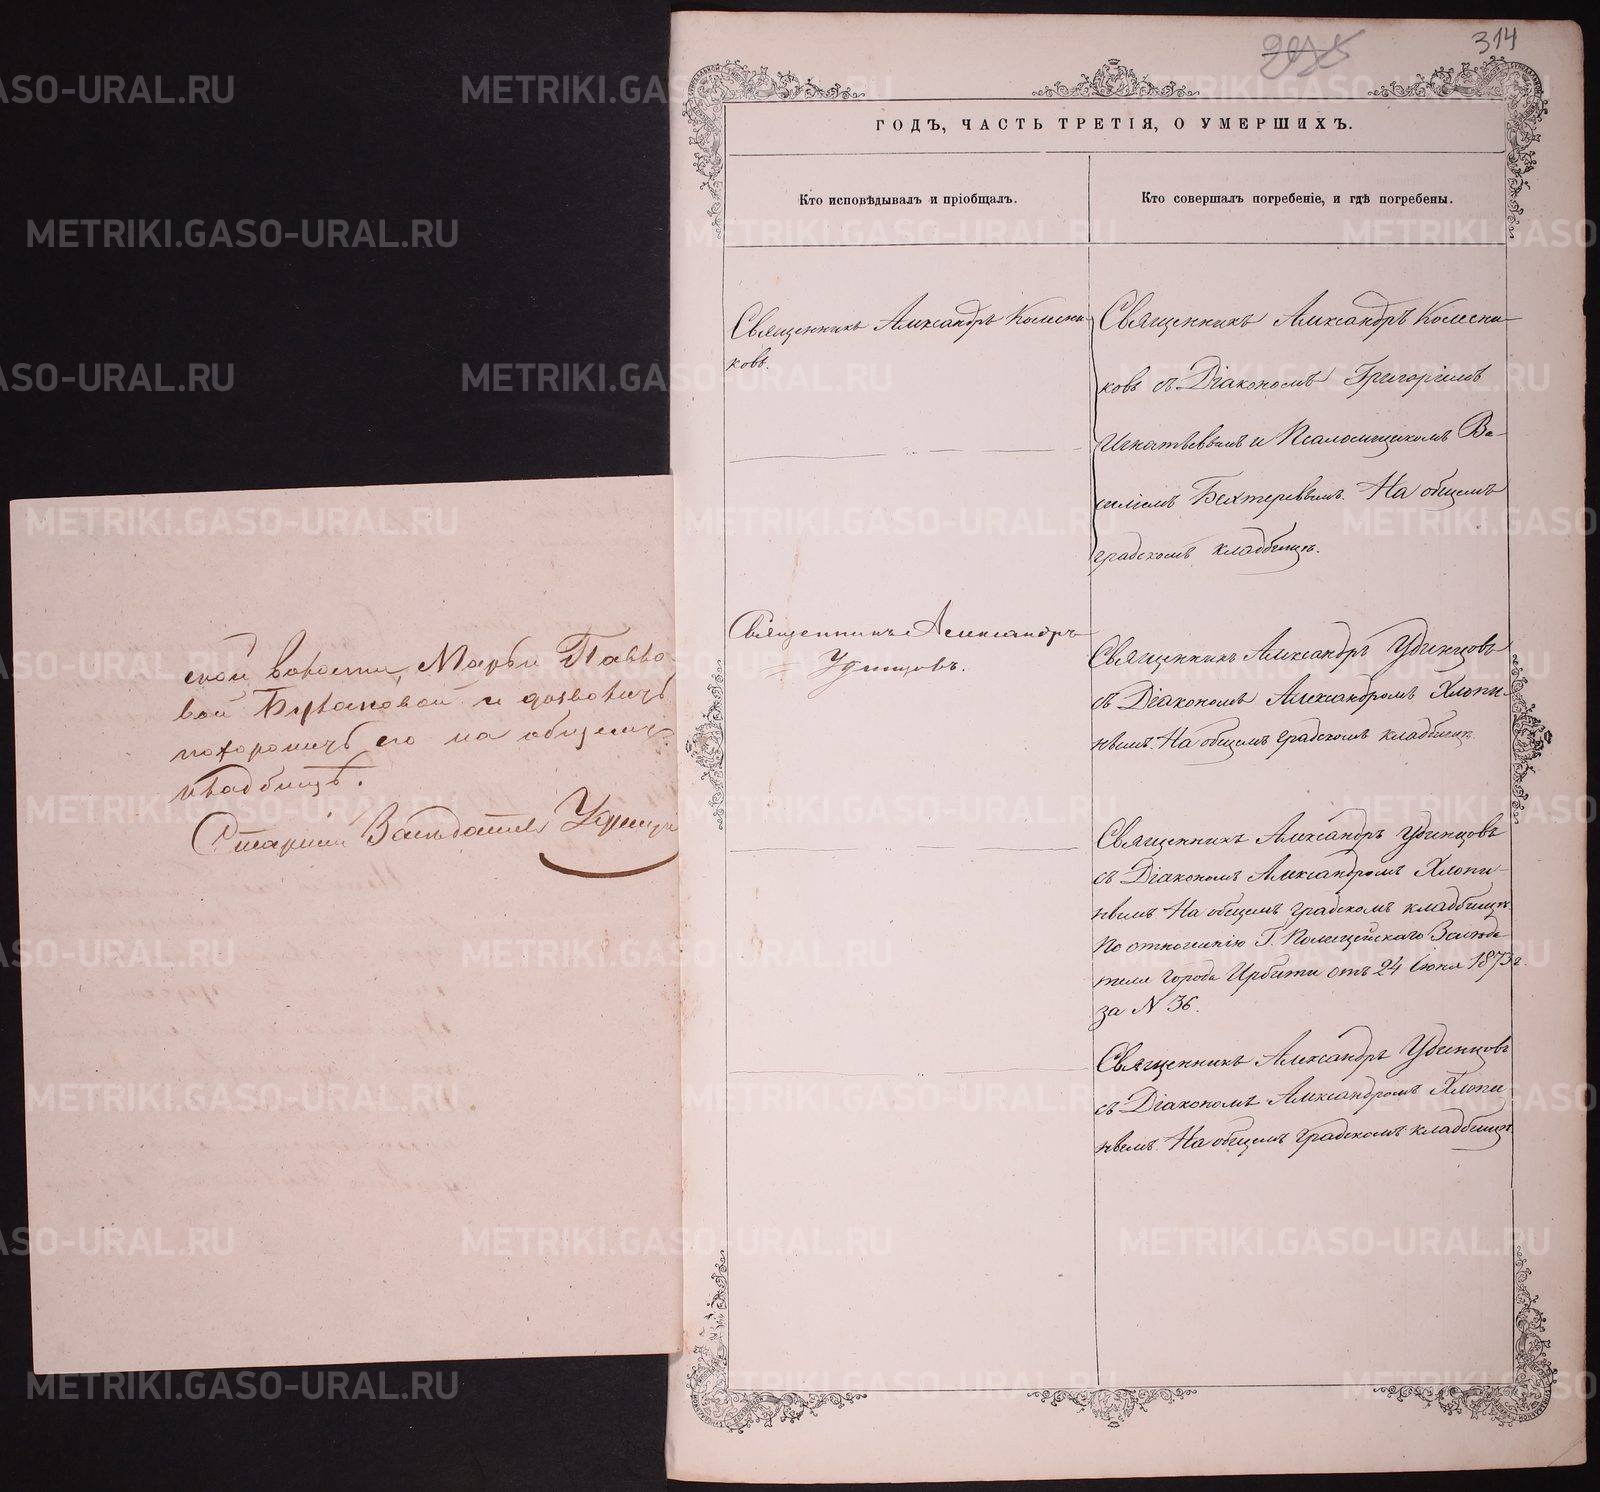 314
ГОДЪ, ЧАСТЬ ТРЕТІЯ, О УМЕРШИХЪ.
Кто исповѣдывалъ и пріобщалъ.
Кто совершалъ погребеніе, и гдѣ погребены.
Священникъ Александръ Колесни-
ковъ.
Священникъ Александръ
Удинцовъ.
Священникъ Александръ Колесни-
ковъ съ Діакономъ Григоріемъ
Игнатьевымъ и Псаломщикомъ Ва-
силіемъ Бехтеревымъ. На общемъ
градскомъ кладбищѣ.
Священникъ Александръ Удинцовъ
съ Діакономъ Александромъ Хлопи-
нымъ. На общемъ градскомъ кладбищѣ.
Священникъ Александръ Удинцовъ
съ Діакономъ Александромъ Хлопи-
нымъ На общемъ градскомъ кладбищѣ
По отношенію Г. Полицейскаго
города Ирбити отъ 24 Іюня 1873 г.
за N 36.
Священникъ Александръ Удинцовъ
съ Діакономъ Александромъ Хлопи
нымъ. На общемъ градскомъ кладбищѣ
ской волости, Марьи Павло-
вой и дозволить
похоронить его на общемъ
кладбищѣ.
Старшій
METRIKI.GASO-URAL.RU